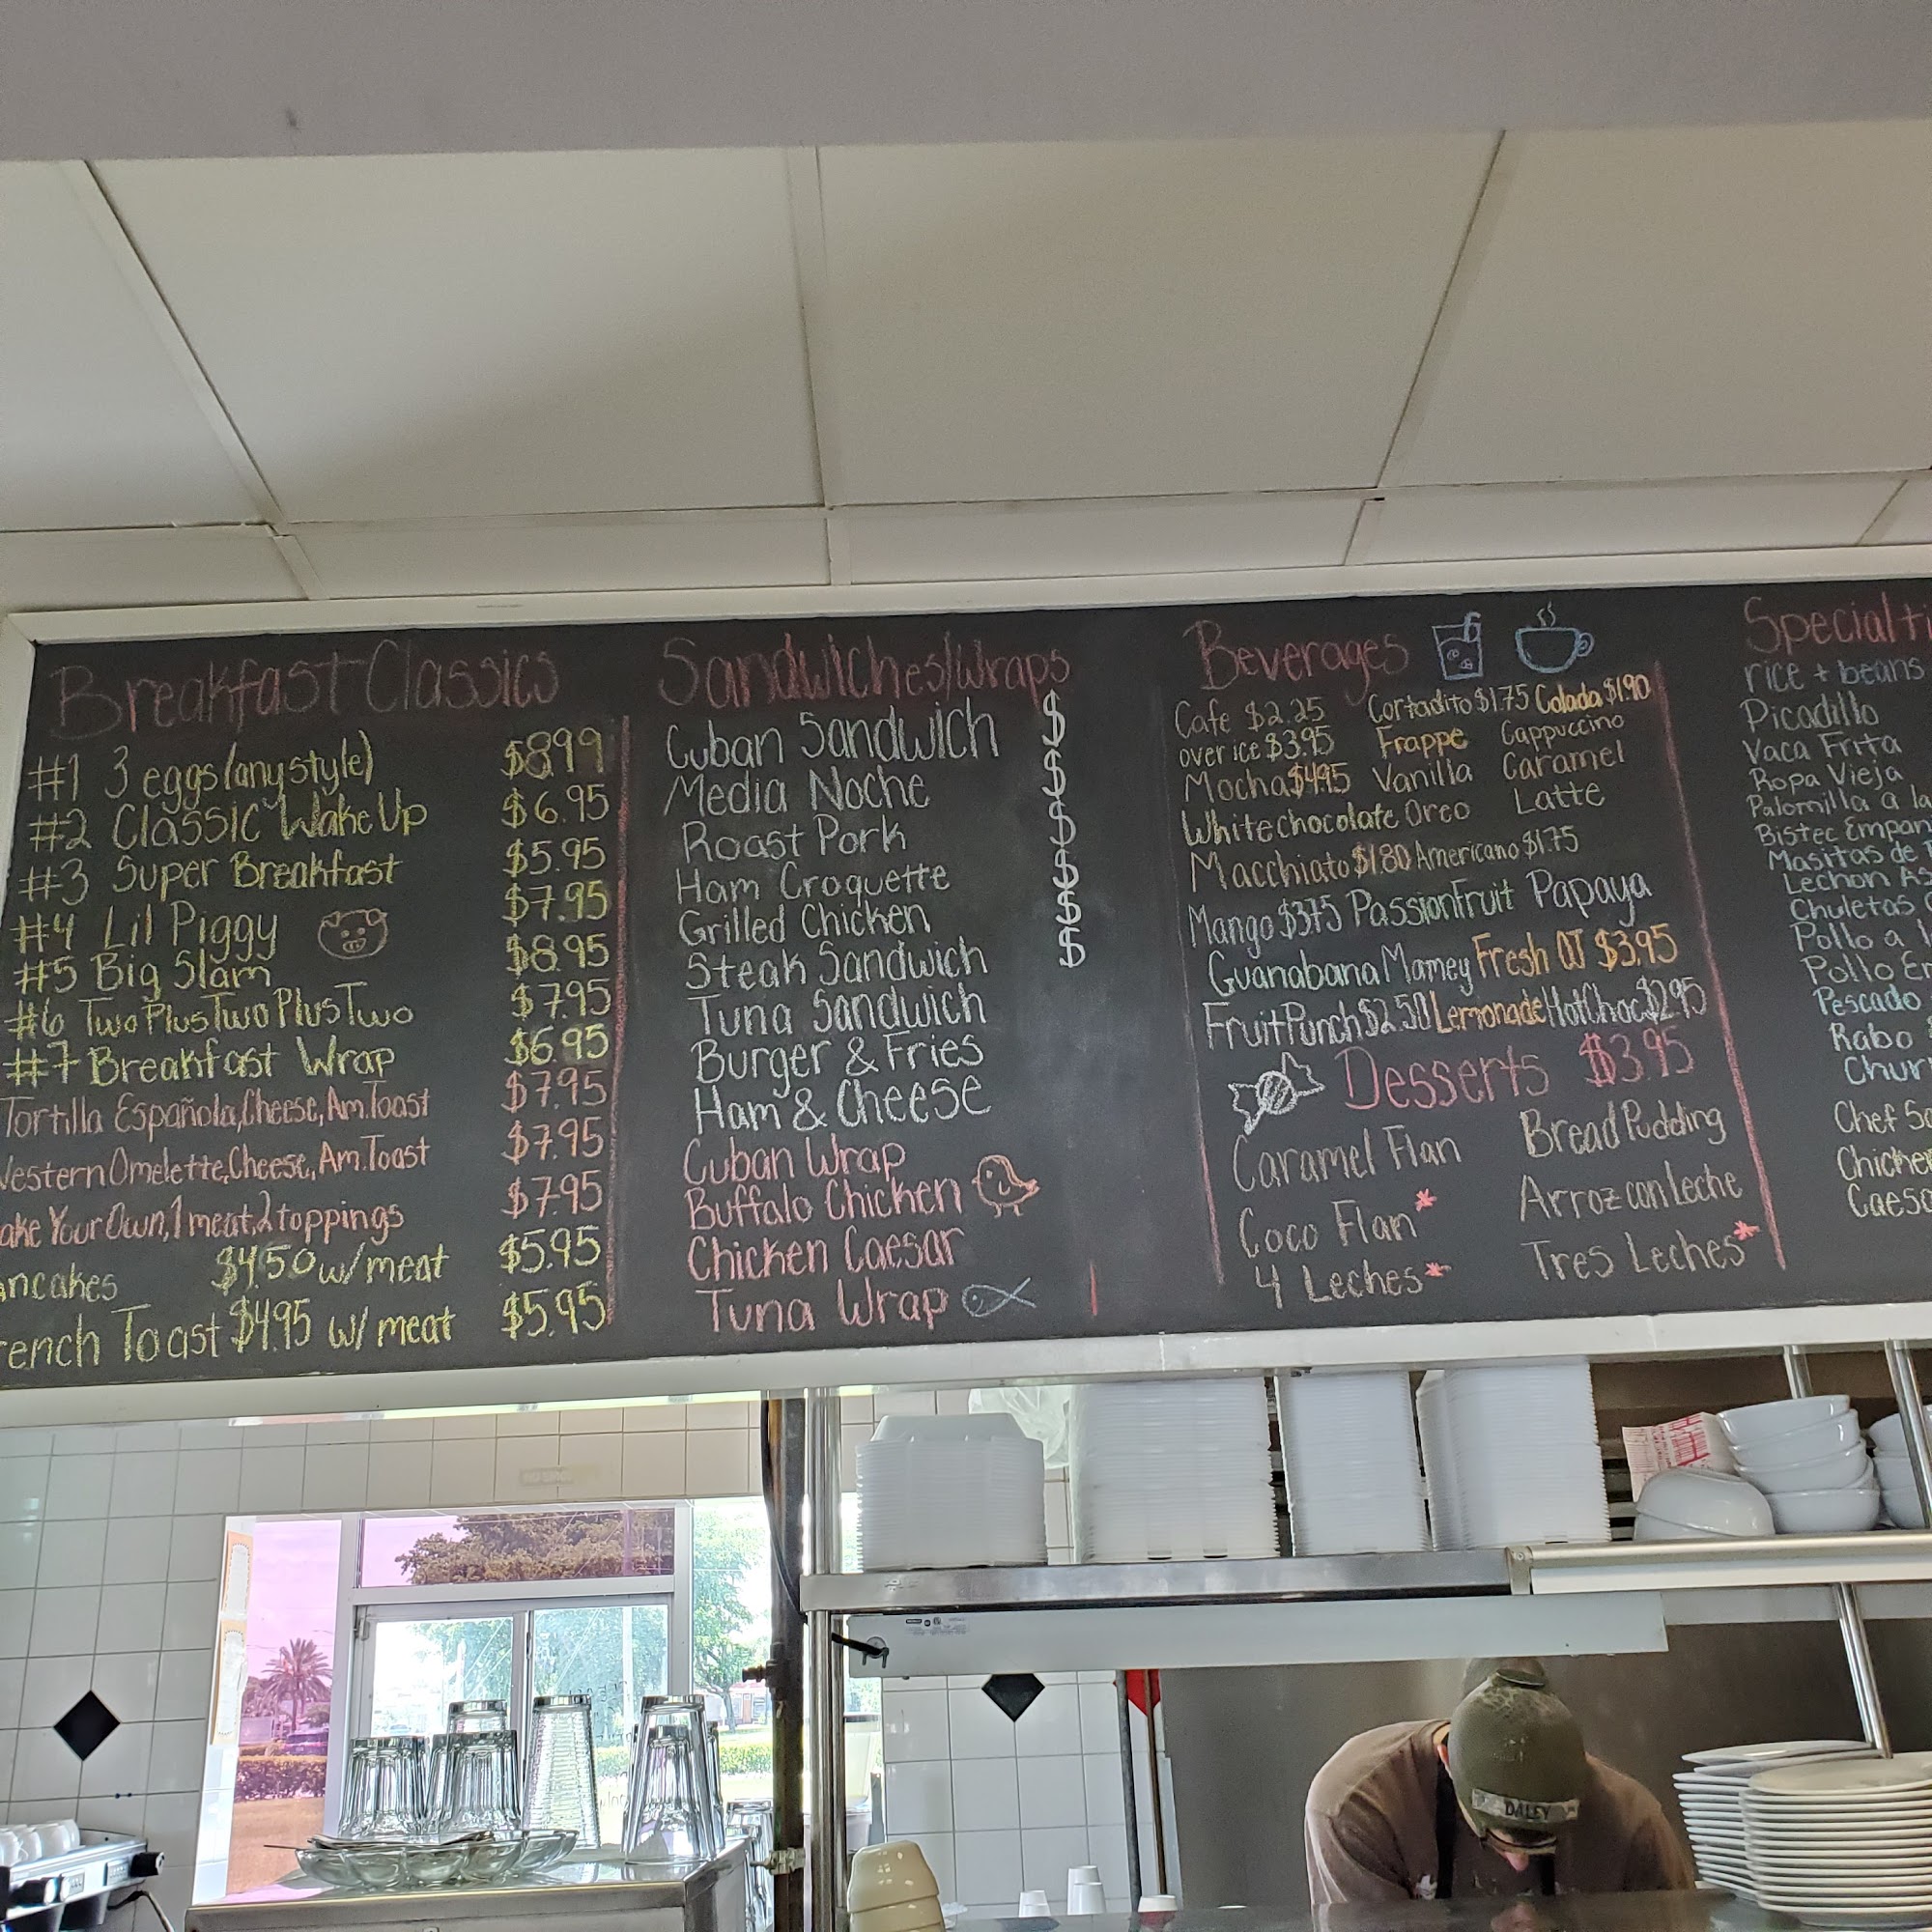 Breakfast Classics
#1 3 eggs (any style) $8.99
#2 Classic Wake Up $6.95
#3 Super Breakfast $5.95
#4 Lil Piggy $7.95
#5 Big Slam $8.95
#6 Two Plus Two Plus Two $7.95
#7 Breakfast Wrap $6.95
Tortilla Española, Cheese, Am. Toast $7.95
Western Omelette, Cheese, Am. Toast $7.95
ake Your Own, 1 meat, 2 toppings $7.95
ancakes $4.50 w/ meat $5.95
rench Toast $4.95 w/ meat $5.95
Sandwiches/Wraps
Cuban Sandwich $
Media Noche $
Roast Pork $
Ham Croquette $
Grilled Chicken $
Steak Sandwich $
Tuna Sandwich
Burger & Fries
Ham & Cheese
Cuban Wrap
Buffalo Chicken
Chicken Caesar
Tuna Wrap
Beverages
Cafe $2.25 Cortadito $1.75 Colada $1.90
over ice $3.95 Frappe Cappuccino
Mocha $4.95 Vanilla Caramel
White chocolate Oreo Latte
Macchiato $1.80 Americano $1.75
Mango $3.75 Passion Fruit Papaya
Guanabana Mamey Fresh OJ $3.95
Fruit Punch $2.50 Lemonade Hot Choc $2.95
Desserts $3.95
Caramel Flan Bread Pudding
Coco Flan* Arroz con Leche
4 Leches* Tres Leches*
Specialti
rice + beans
Picadillo
Vaca Frita
Ropa Vieja
Palomilla a la
Bistec Empan
Masitas de
Lechon As
Chuletas
Pollo a
Pollo En
Pescado
Rabo
Chur
Chef Sa
Chicken
Caesa
DALEY